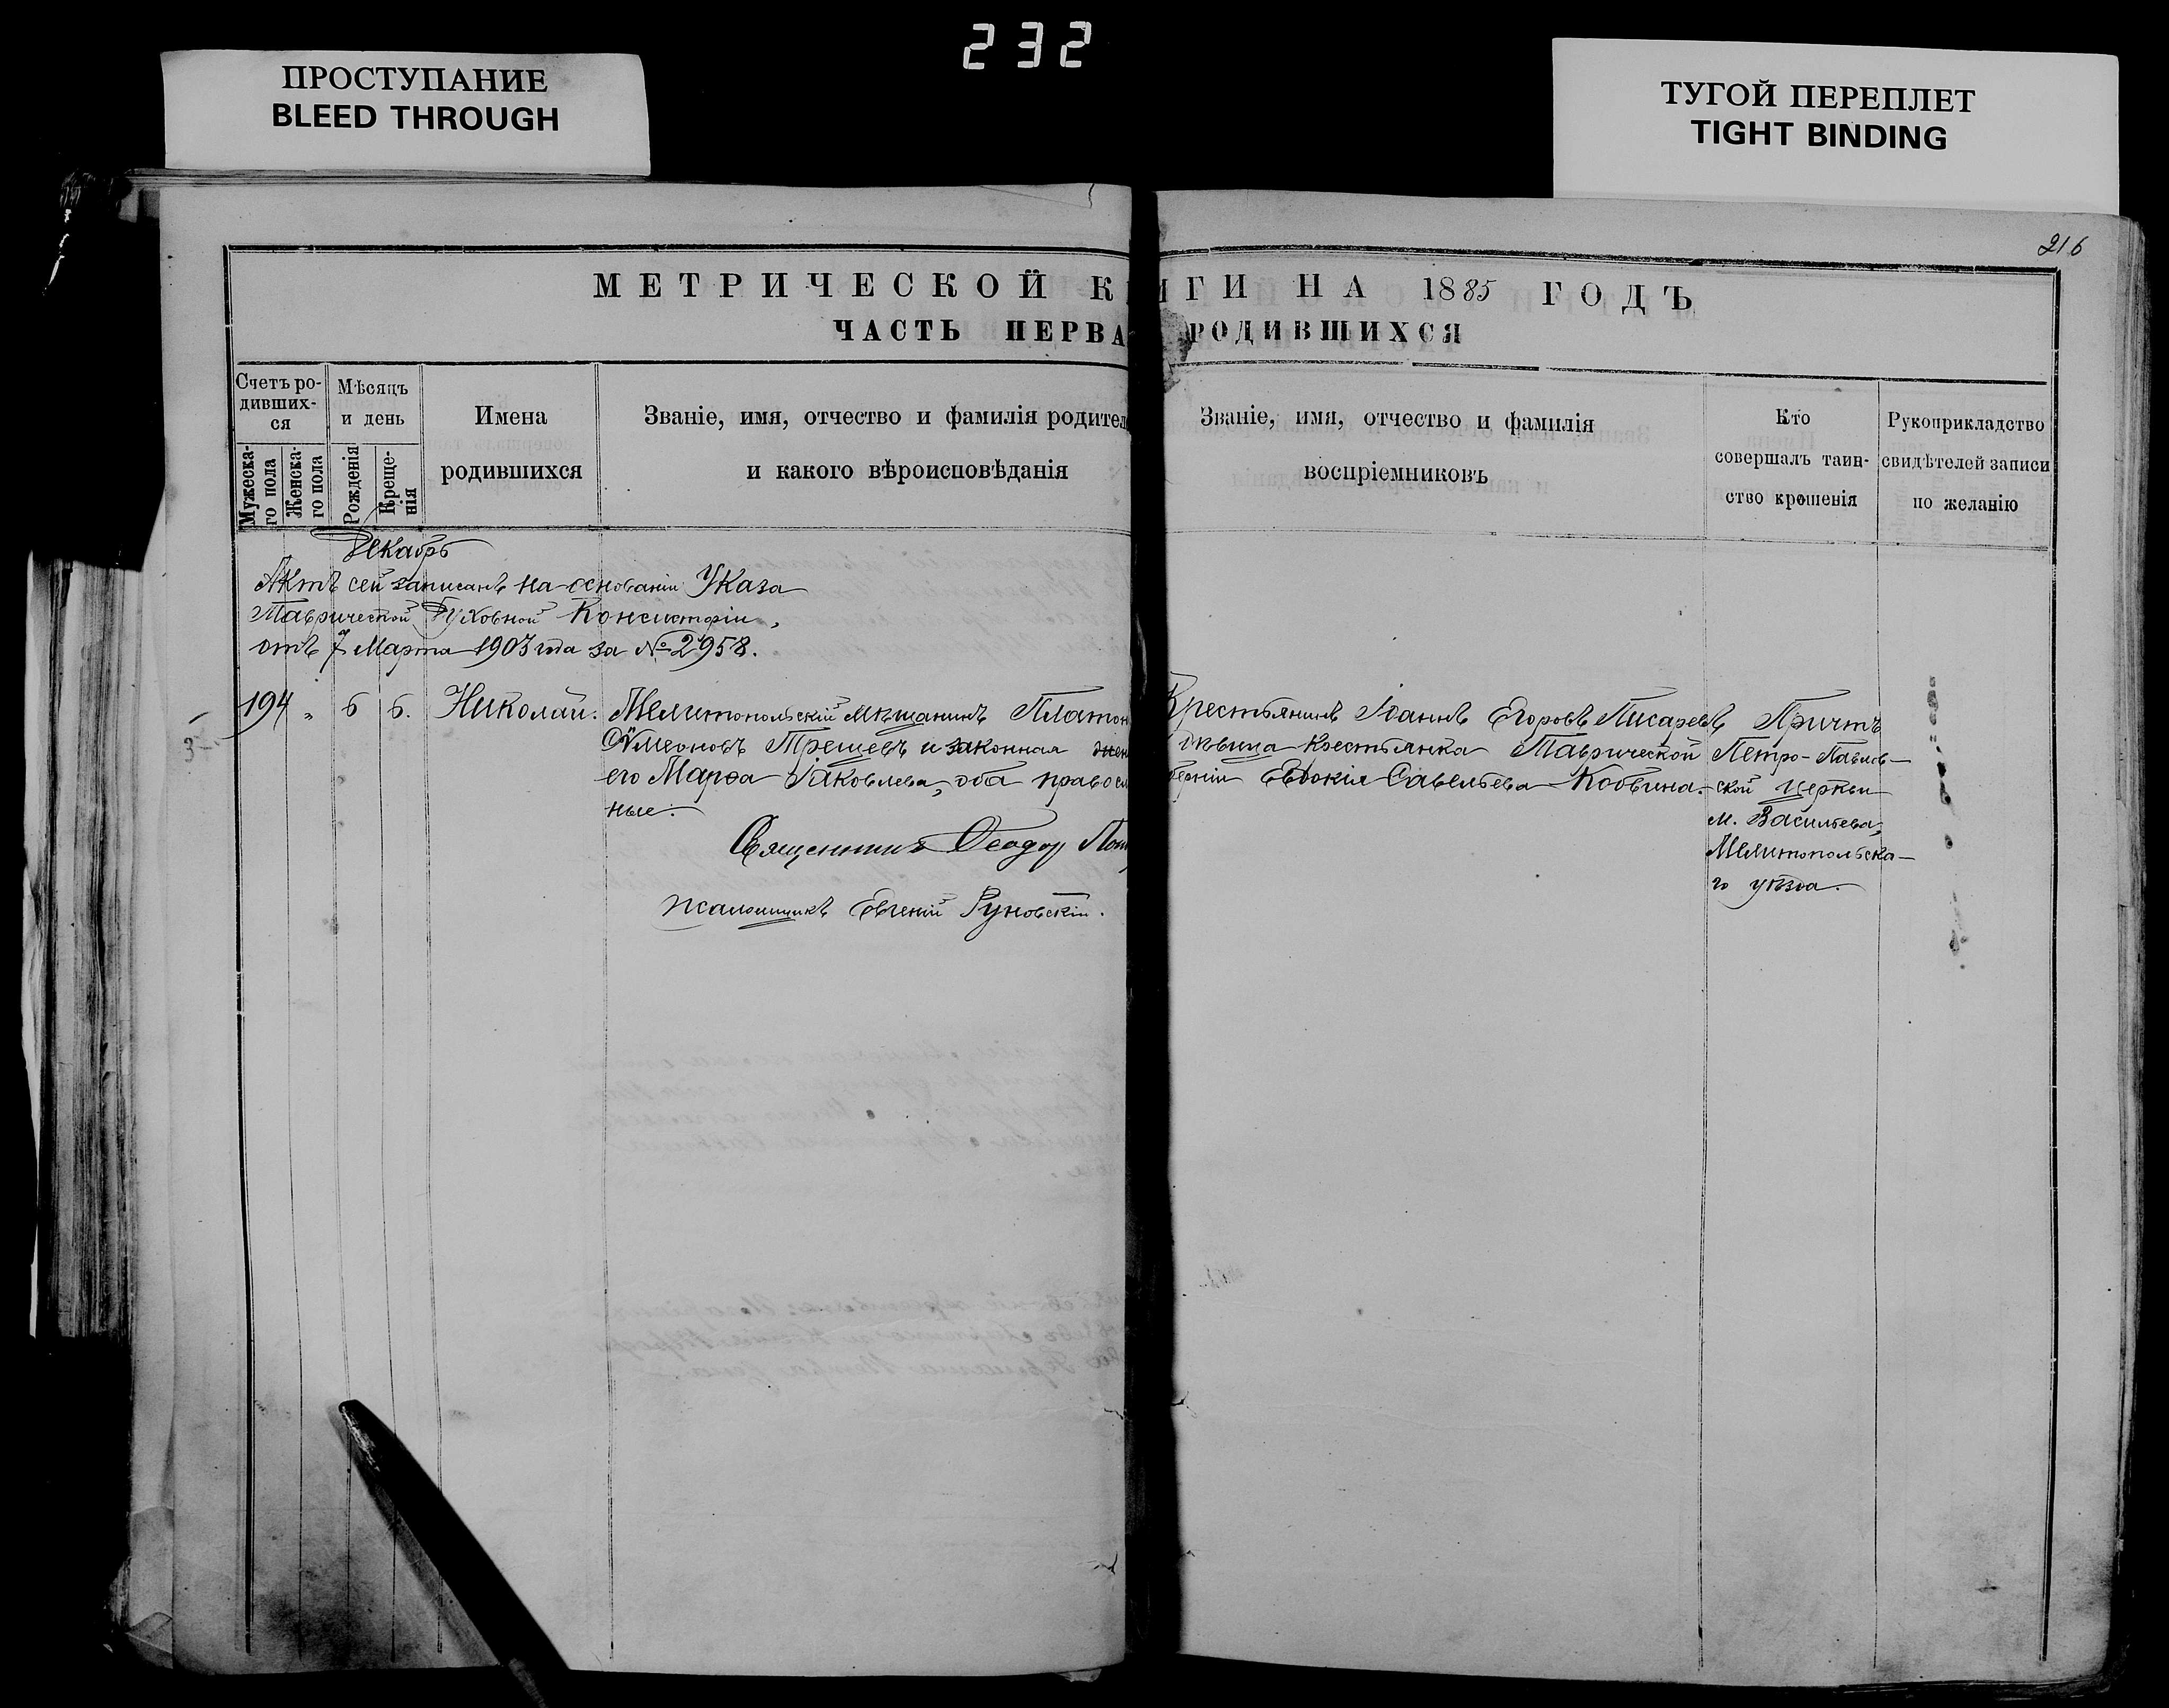 232
ПРОСТУПАНИЕ
BLEED THROUGH
ТУГОЙ ПЕРЕПЛЕТ
TIGHT BINDING
216
МЕТРИЧЕСКОЙ К
ИГИ НА 1885 ГОДЪ
ЧАСТЬ ПЕРВА
РОДИВШИХСЯ
Счетъ ро-
дивших-
ся
Мужеска-
го пола
Женска-
го пола
Мѣсяцъ
и день
Рожденія
Креще-
нія
Имена
родившихся
Званіе, имя, отчество и фамилія родител
и какого вѣроисповѣданія
Званіе, имя, отчество и фамилія
воспріемниковъ
Кто
совершалъ таин-
ство крещенія
Рукоприкладство
свидѣтелей записи
по желанію
Декабрь
Актъ сей записанъ на основаніи Указа
Таврической Духовной Консисторіи,
отъ 7 Марта 1903 года за № 2958.
194 " 6 6. Николай.
Мелитопольскій мѣщанинъ Платон
Сѵмеоновъ Трешевъ и законная жен
его Марѳа Іаковлева, оба правосл
ные.
Священникъ Ѳеодоръ
псаломщикъ Евгеній Руновскій.
Крестьянинъ Іоаннъ Егоровъ Писаревъ
дѣвица крестьянка Таврической
берніи Евдокія Савельева Кобзина.
Причтъ
Петро-Павлов-
ской церкви
м. Васильева,
Мелитопольска-
го уѣзда.